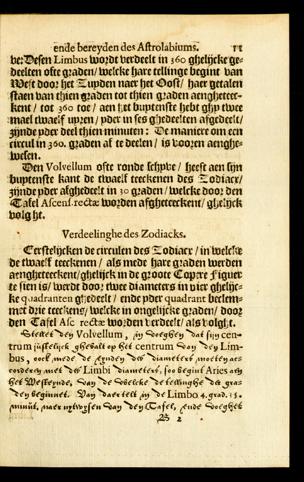 ende bereyden des Astrolabiums. 11
ve: Desen Limbus wordt verdeelt in 360 ghelijcke ge-
deelten ofte graden/ welcke hare tellinge begint van
West door het Zuyden naer het Oost/ haer getalen
staen van thien graden tot thien graden aengheteec-
kent/ tot 360 toe/ aen het buytenste hebt ghy twee
mael twaelf upren/ yder in ses ghedeelten afgedeelt/
zijnde yder deel thien minuten: De maniere om een
circul in 360. graden af te deelen/ is vooren aenghe-
wesen.
Den Volvellum ofte ronde schyve/ heeft aen sijn
buytenste kant de twaelf teeckenen des Zodiacx/
zijnde yder afghedeelt in 30 graden/ welcke door den
Tafel Ascens. rectæ worden afgheteeckent/ ghelijck
volght.
Verdeelinghe des Zodiacks.
Eerstelijcken de circulen des Zodiacx/ in welcke
de twaelf teeckenen/ als mede hare graden werden
aengheteeckent/ ghelijck in de groote Copere Figuer
te sien is/ werdt door twee diameters in vier ghelijc-
ke quadranten ghedeelt/ ende yder quadrant beslem-
met drie teeckens/ welcke in ongelijcke graden/ door
den Tafel Asc rectæ worden verdeelt/ als volght.
Steket den Volvellum, in voeghen dat sijn cen-
trum juistelijck ghevalt op het centrum van den Lim-
bus, oock mede de eynden der diameters moeten ac-
corderen met der Limbi diameters, soo begint Aries aen
het Westeynde, van de welcke de tellinghe der gra-
den beginnet. Van daer telt in de Limbo 4. grad. 15.
minut. naer uytwysen van den Tafel, ende voeghet
B 2